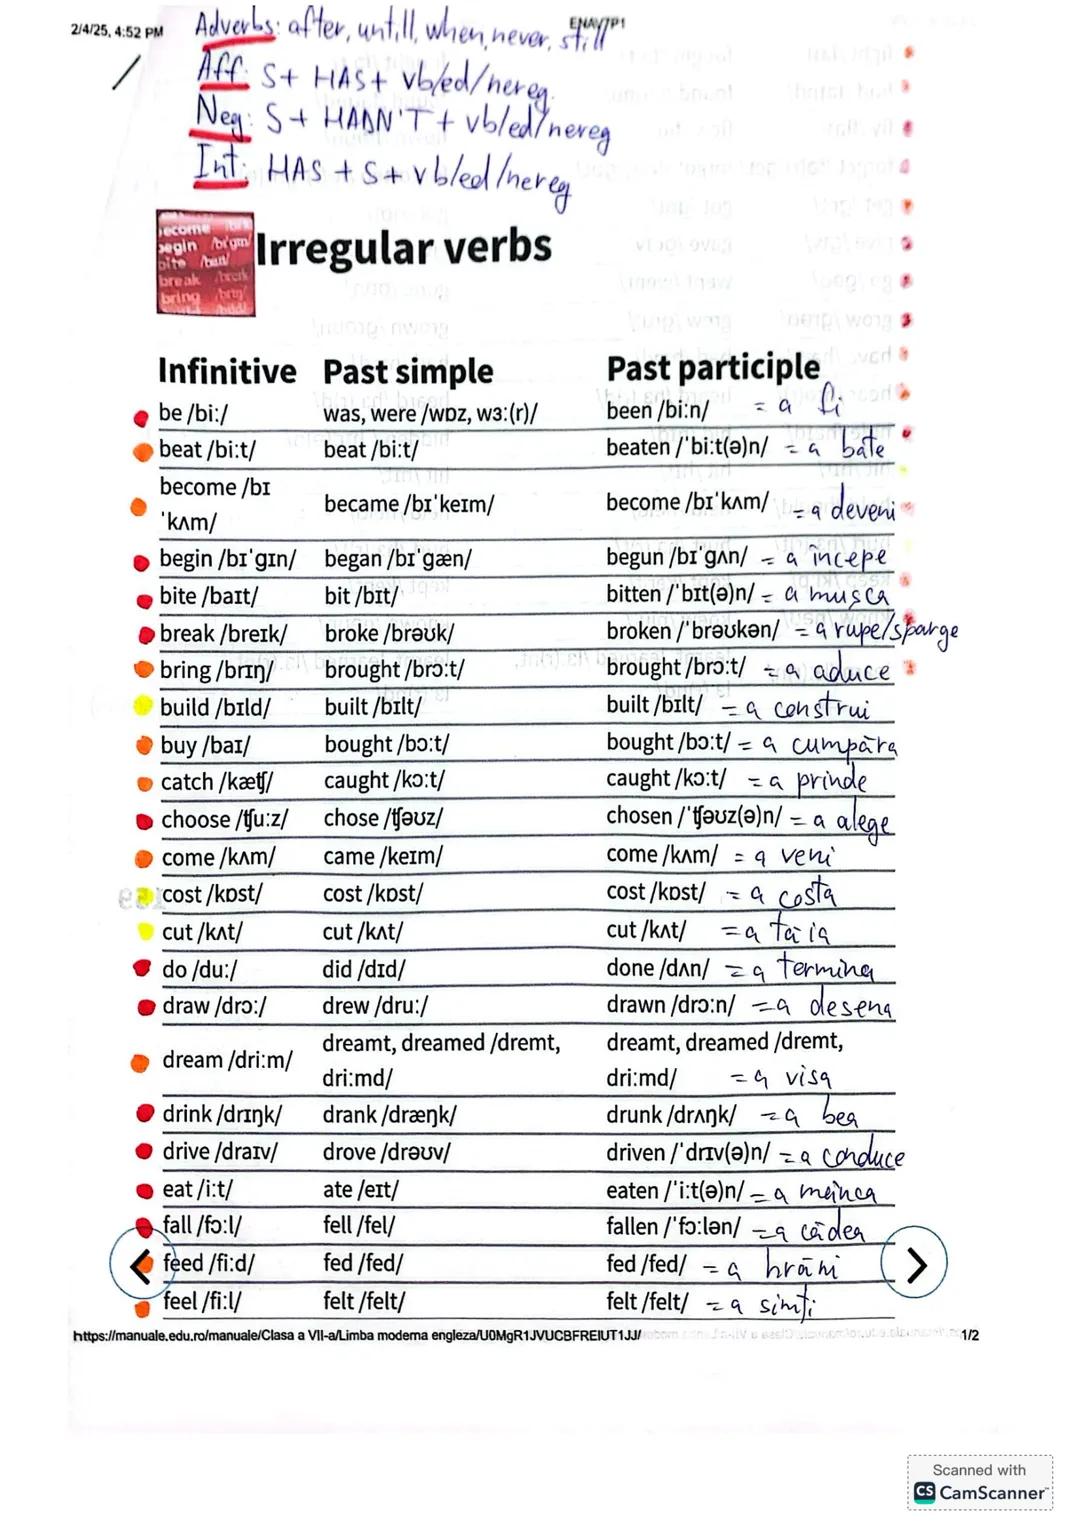 2/4/25, 4:52 PM
ENAV7P1
Adverbs: after, untill, when, never, still
Aff: S+ HAS+ vb/ed/nereg.
Neg: S+ HADN'T + vb/ed/nereg
Int: HAS + S+ vb/ed/nereg
Irregular verbs
Infinitive Past simple Past participle
be /biː/ was, were /wɒz, wɜː(r)/ been /biːn/ = a fi
beat /biːt/ beat /biːt/ beaten /ˈbiːt(ə)n/ = a bate
become /bɪ
ˈkʌm/ became /bɪˈkeɪm/ become /bɪˈkʌm/ = a deveni
begin /bɪˈɡɪn/ began /bɪˈɡæn/ begun /bɪˈɡʌn/ = a începe
bite /baɪt/ bit /bɪt/ bitten /ˈbɪt(ə)n/ = a mușca
break /breɪk/ broke /brəʊk/ broken /ˈbrəʊkən/ = a rupe/sparge
bring /brɪŋ/ brought /brɔːt/ brought /brɔːt/ = a aduce
build /bɪld/ built /bɪlt/ built /bɪlt/ = a construi
buy /baɪ/ bought /bɔːt/ bought /bɔːt/ = a cumpăra
catch /kætʃ/ caught /kɔːt/ caught /kɔːt/ = a prinde
choose /tʃuːz/ chose /tʃəʊz/ chosen /ˈtʃəʊz(ə)n/ = a alege
come /kʌm/ came /keɪm/ come /kʌm/ = a veni
cost /kɒst/ cost /kɒst/ cost /kɒst/ = a costa
cut /kʌt/ cut /kʌt/ cut /kʌt/ = a tăia
do /duː/ did /dɪd/ done /dʌn/ = a termina
draw /drɔː/ drew /druː/ drawn /drɔːn/ = a desena
dream /driːm/ dreamt, dreamed /dremt, dreamt, dreamed /dremt,
driːmd/ driːmd/ = a visa
drink /drɪŋk/ drank /dræŋk/ drunk /drʌŋk/ = a bea
drive /draɪv/ drove /drəʊv/ driven /ˈdrɪv(ə)n/ = a conduce
eat /iːt/ ate /eɪt/ eaten /ˈiːt(ə)n/ = a mânca
fall /fɔːl/ fell /fel/ fallen /ˈfɔːlən/ = a cădea
feed /fiːd/ fed /fed/ fed /fed/ = a hrăni
feel /fiːl/ felt /felt/ felt /felt/ = a simți
https://manuale.edu.ro/manuale/Clasa a VII-a/Limba moderna engleza/U0MgR1JVUCBFREIUT1JJ/ 1/2
Scanned with
CS CamScanner